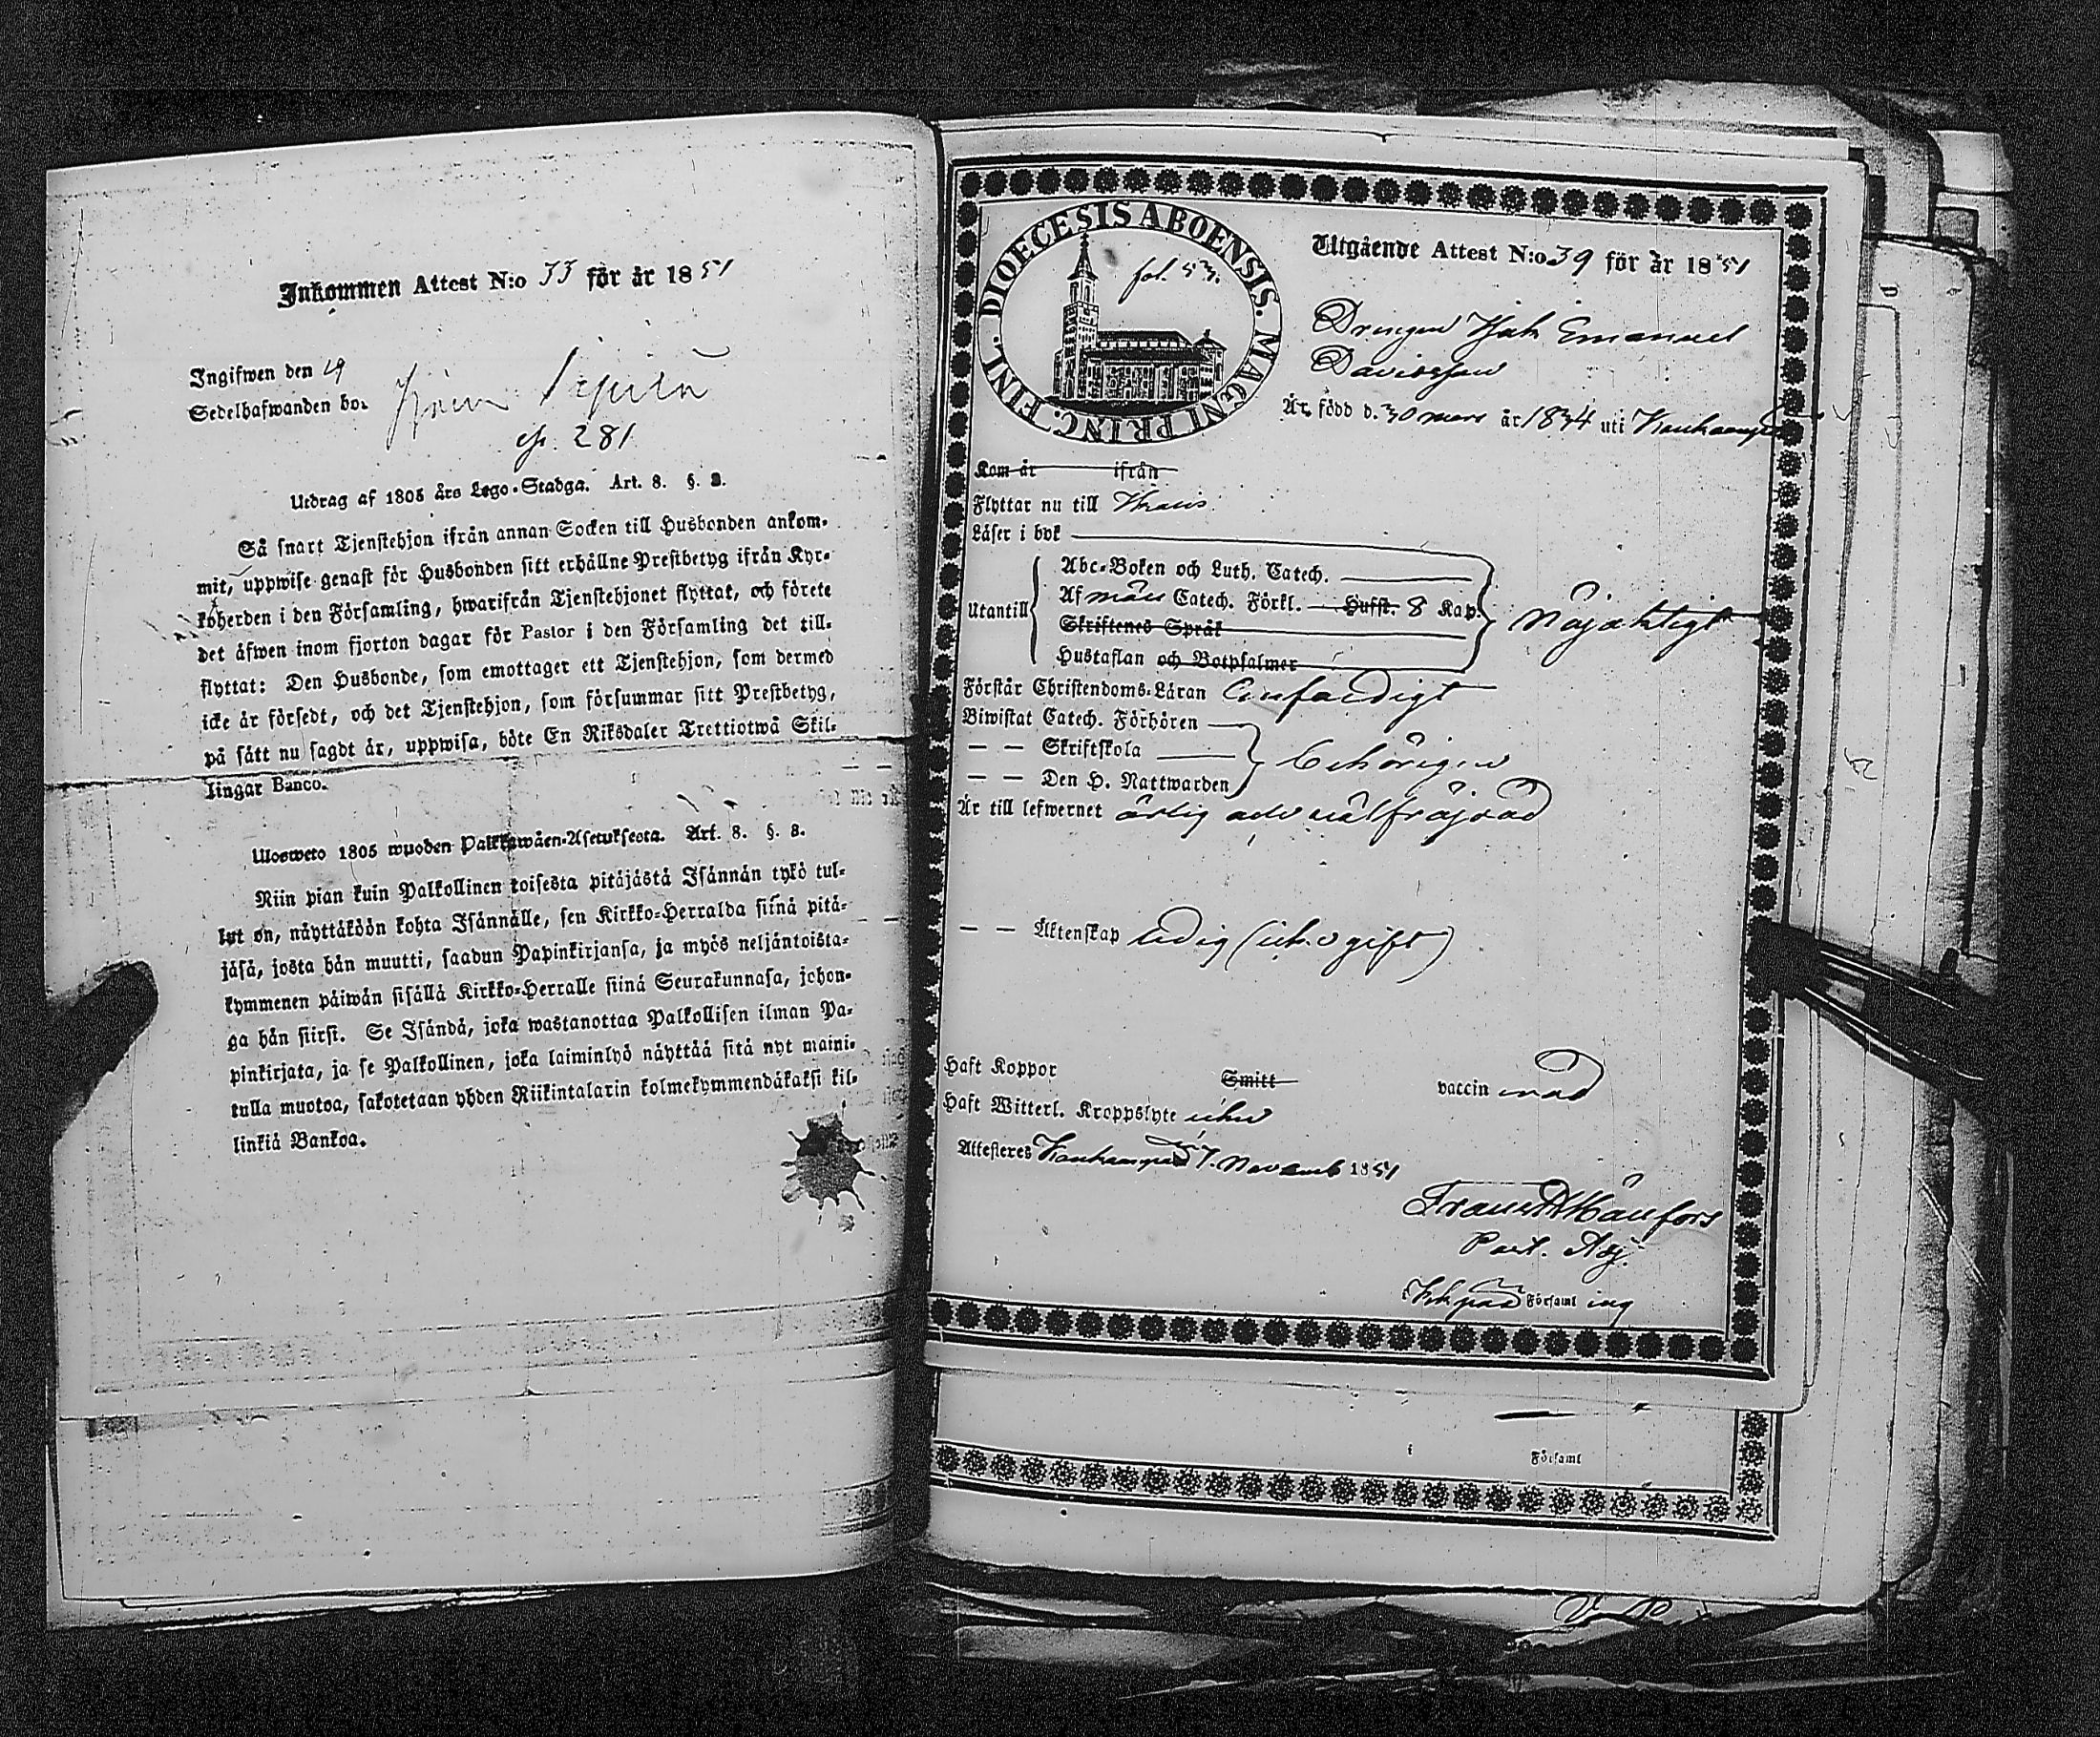 Inkommen Attest N:o 33 för år 1851
Ingifwen den 19
Sedelhafwanden bor
281
Utdrag af 1805 års Lego-Stadga. Art. 8. §. 8.
Så snart Tjenstehjon ifrån annan Socken till Husbonden ankom-
mit, uppwise genast för Husbonden sitt erhållne Prestbetyg ifrån Kyr-
koherden i den Församling, hwarifrån Tjenstehjonet flyttat, och förete
det äfwen inom fjorton dagar för Pastor i den Församling det till-
flyttat: Den Husbonde, som emottager ett Tjenstehjon, som dermed
icke är försedt, och det Tjenstehjon, som försummar sitt Prestbetyg,
på sätt nu sagdt är, uppwisa, böte En Riksdaler Trettiotwå Skil-
lingar Banco.
Ulosweto 1805 wuoden Palkkawäen-Asetuksesta. Art. 8. §. 8.
Niin pian kuin Palkollinen toisesta pitäjästä Isännän tykö tul-
lut on, näyttäköön kohta Isännälle, sen Kirkko-Herralda siinä pitä-
jäsä, josta hän muutti, saadun Papinkirjansa, ja myös neljäntoista-
kymmenen päiwän sisällä Kirkko-Herralle siinä Seurakunnasa, johon-
ga hän siirsi. Se Isändä, joka wastanottaa Palkollisen ilman Pa-
pinkirjata, ja se Palkollinen, joka laiminlyö näyttää sitä nyt maini-
tulla muotoa, sakotetaan yhden Riikintalarin kolmekymmendäkaksi kil-
linkiä Bankoa.
DIOECESIS ABOENSIS. MAGNI PRINC. FINL.
fol. 53.
Utgående Attest N:o 39 för år 1851
Drengen Isak Emanuel
Davidsson
Är född d. 30 mars år 1834 uti Kankaanpää
Kom år ifrån
Flyttar nu till
Läser i bok
Utantill
Abc-Boken och Luth. Catech.
Af Catech. Förkl. Hufst. 8 Kap.
Skriftenes Språk
Hustaflan och Botpsalmer
nöjaktigt
Förstår Christendoms-Läran enfaldigt
Biwistat Catech. Förhören
— — Skriftskola
— — Den H. Nattwarden
behörigen
Är till lefwernet ärlig och välfräjdad
— — Äktenskap ledig (icke gift)
Haft Koppor Smitt vaccinerad
Haft Witterl. Kroppslyte icke
Attesteras Kankaanpää d. 7. Novemb 1851
Past. Adj.
i Kkpää Församl ing
Församl